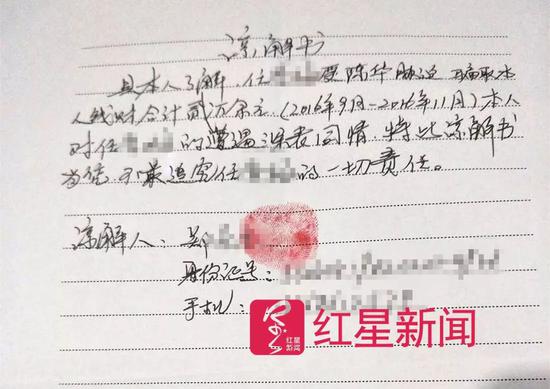 谅解书
具本人了解,任 受陈华胁迫 骗取本
人钱财合计贰万余元(2016年9月-2016年11月)本人
对任 的遭遇深表同情,特此谅解书
为凭,不追究任 的一切责任。
谅解人:郑
身份证号:
手机:
红星新闻
红星新闻